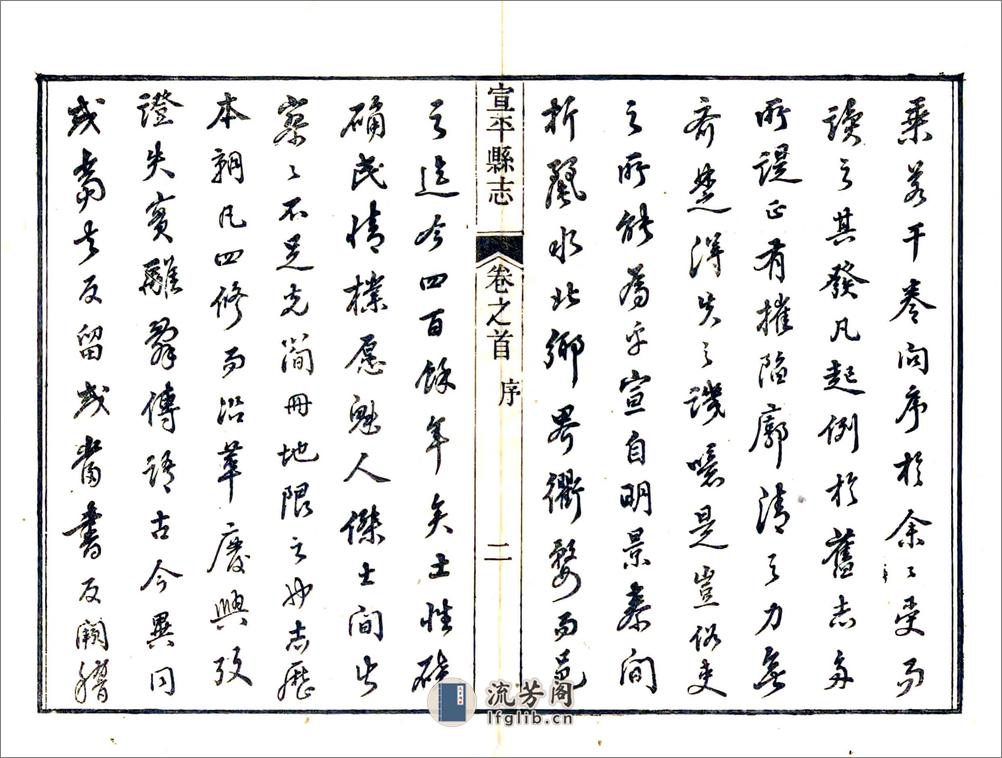 乘若干卷問序於余余受而
讀之其發凡起例於舊志多
所諟正有摧陷廓清之力無
齊楚得失之譏噫是豈俗吏
之所能為乎宣自明景泰間
析麗水北鄉界衢婺而邑
宣平縣志
卷之首 序
二
之迄今四百餘年矣士性硜
确民情樸愿魁人傑士間出
寥寥不足充簡冊地限之也志歷
本朝凡四修而沿革廢興攷
證失實雜引傳語古今異同
或當去反留或當書反闕
流芳阁
lfglib.cn